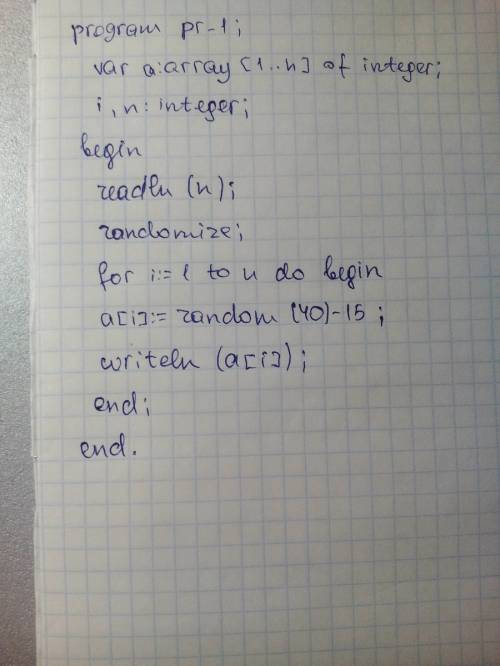 program pr-1;
var a:array[1..n] of integer;
i,n:integer;
begin
readln(n);
randomize;
for i:=1 to n do begin
a[i]:=random(40)-15;
writeln(a[i]);
end;
end.